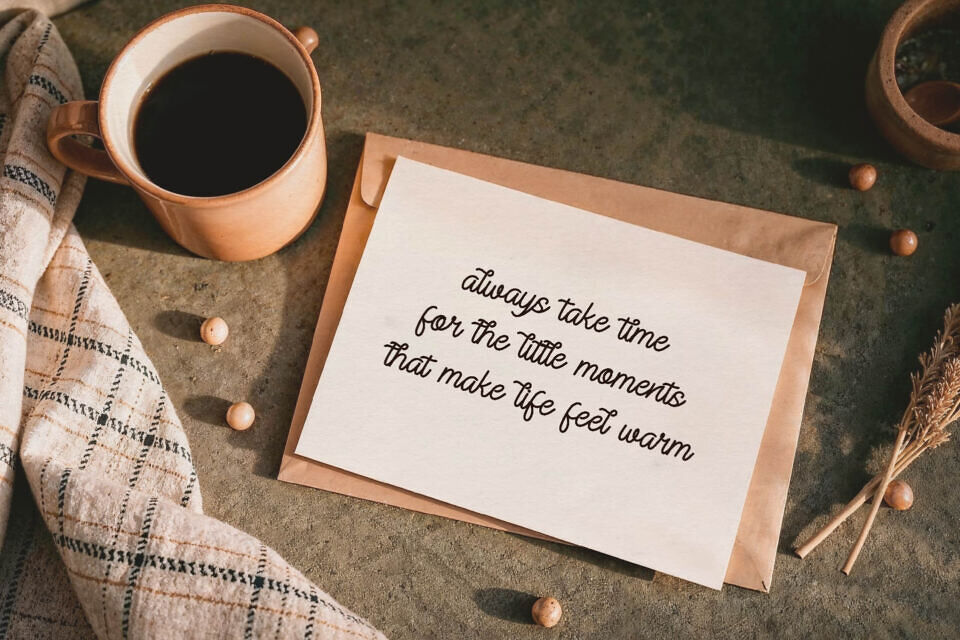 always take time
for the little moments
that make life feel warm